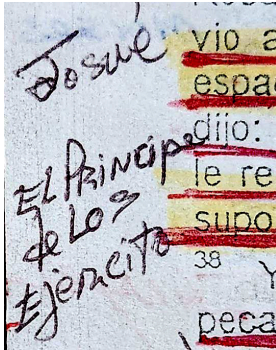 Josué
El Principe
de Los
Ejercito
vio a
espa
dijo:
le re
supo
38 Y
peca